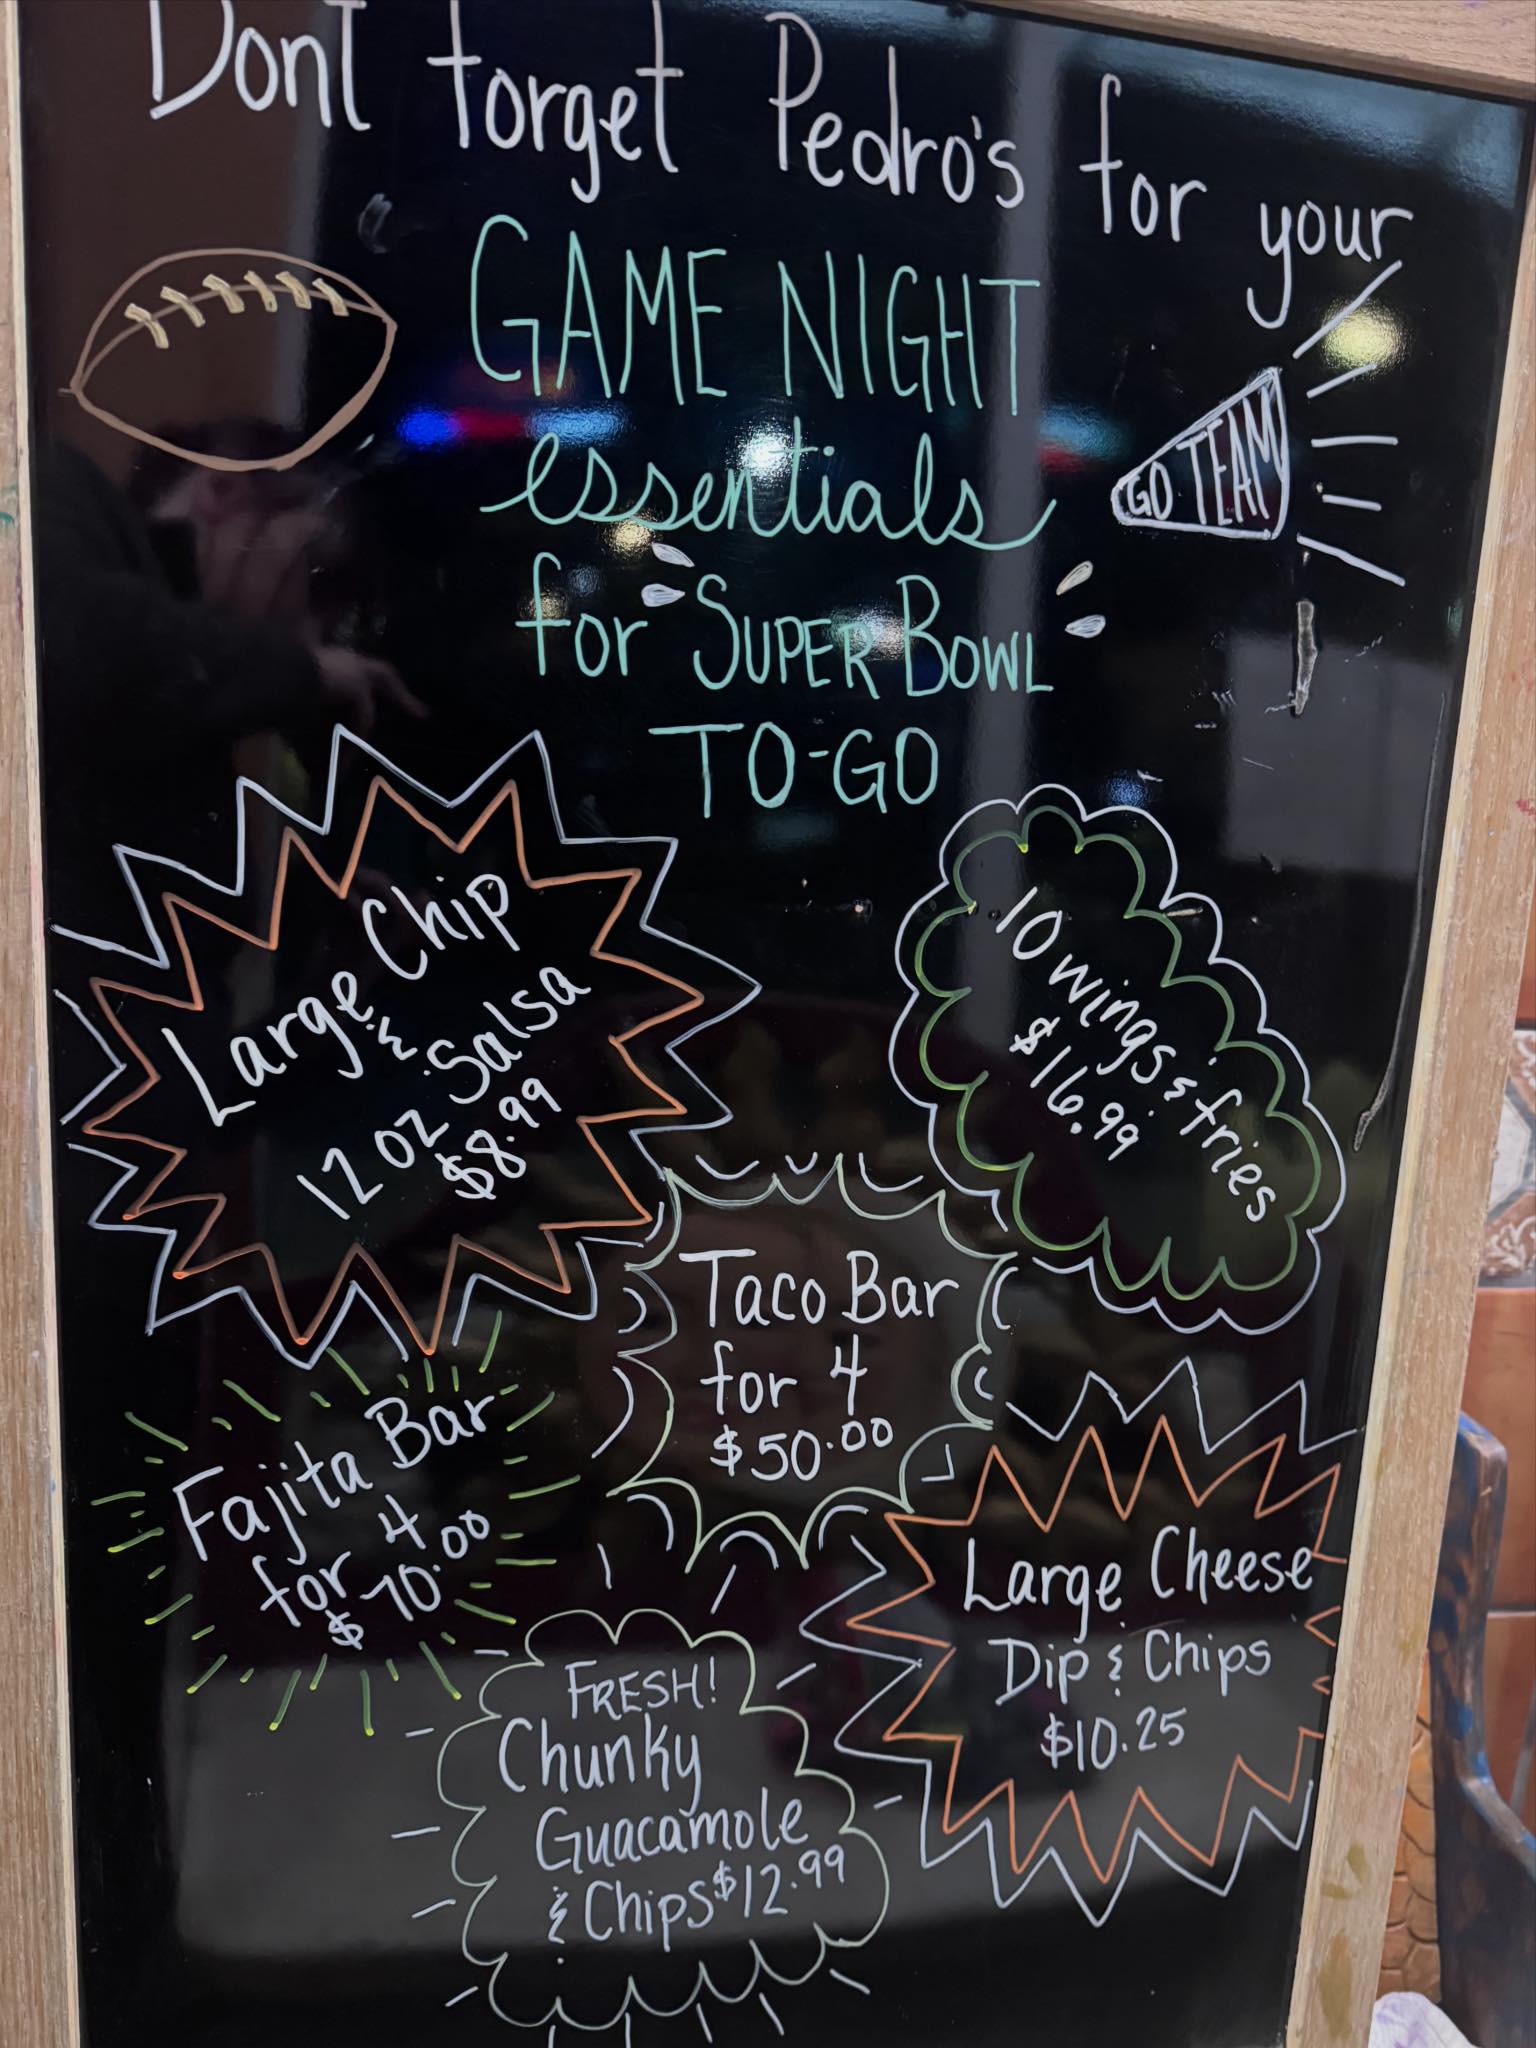 Dont forget Pedro's for your
GAME NIGHT
essentials
for SUPER BOWL
TO-GO
GO TEAM
Large Chip
&
12 oz Salsa
$8.99
10 wings & fries
$16.99
Taco Bar
for 4
$50.00
Fajita Bar
for 4
$70.00
Large Cheese
Dip & Chips
$10.25
FRESH!
Chunky
Guacamole
& Chips $12.99